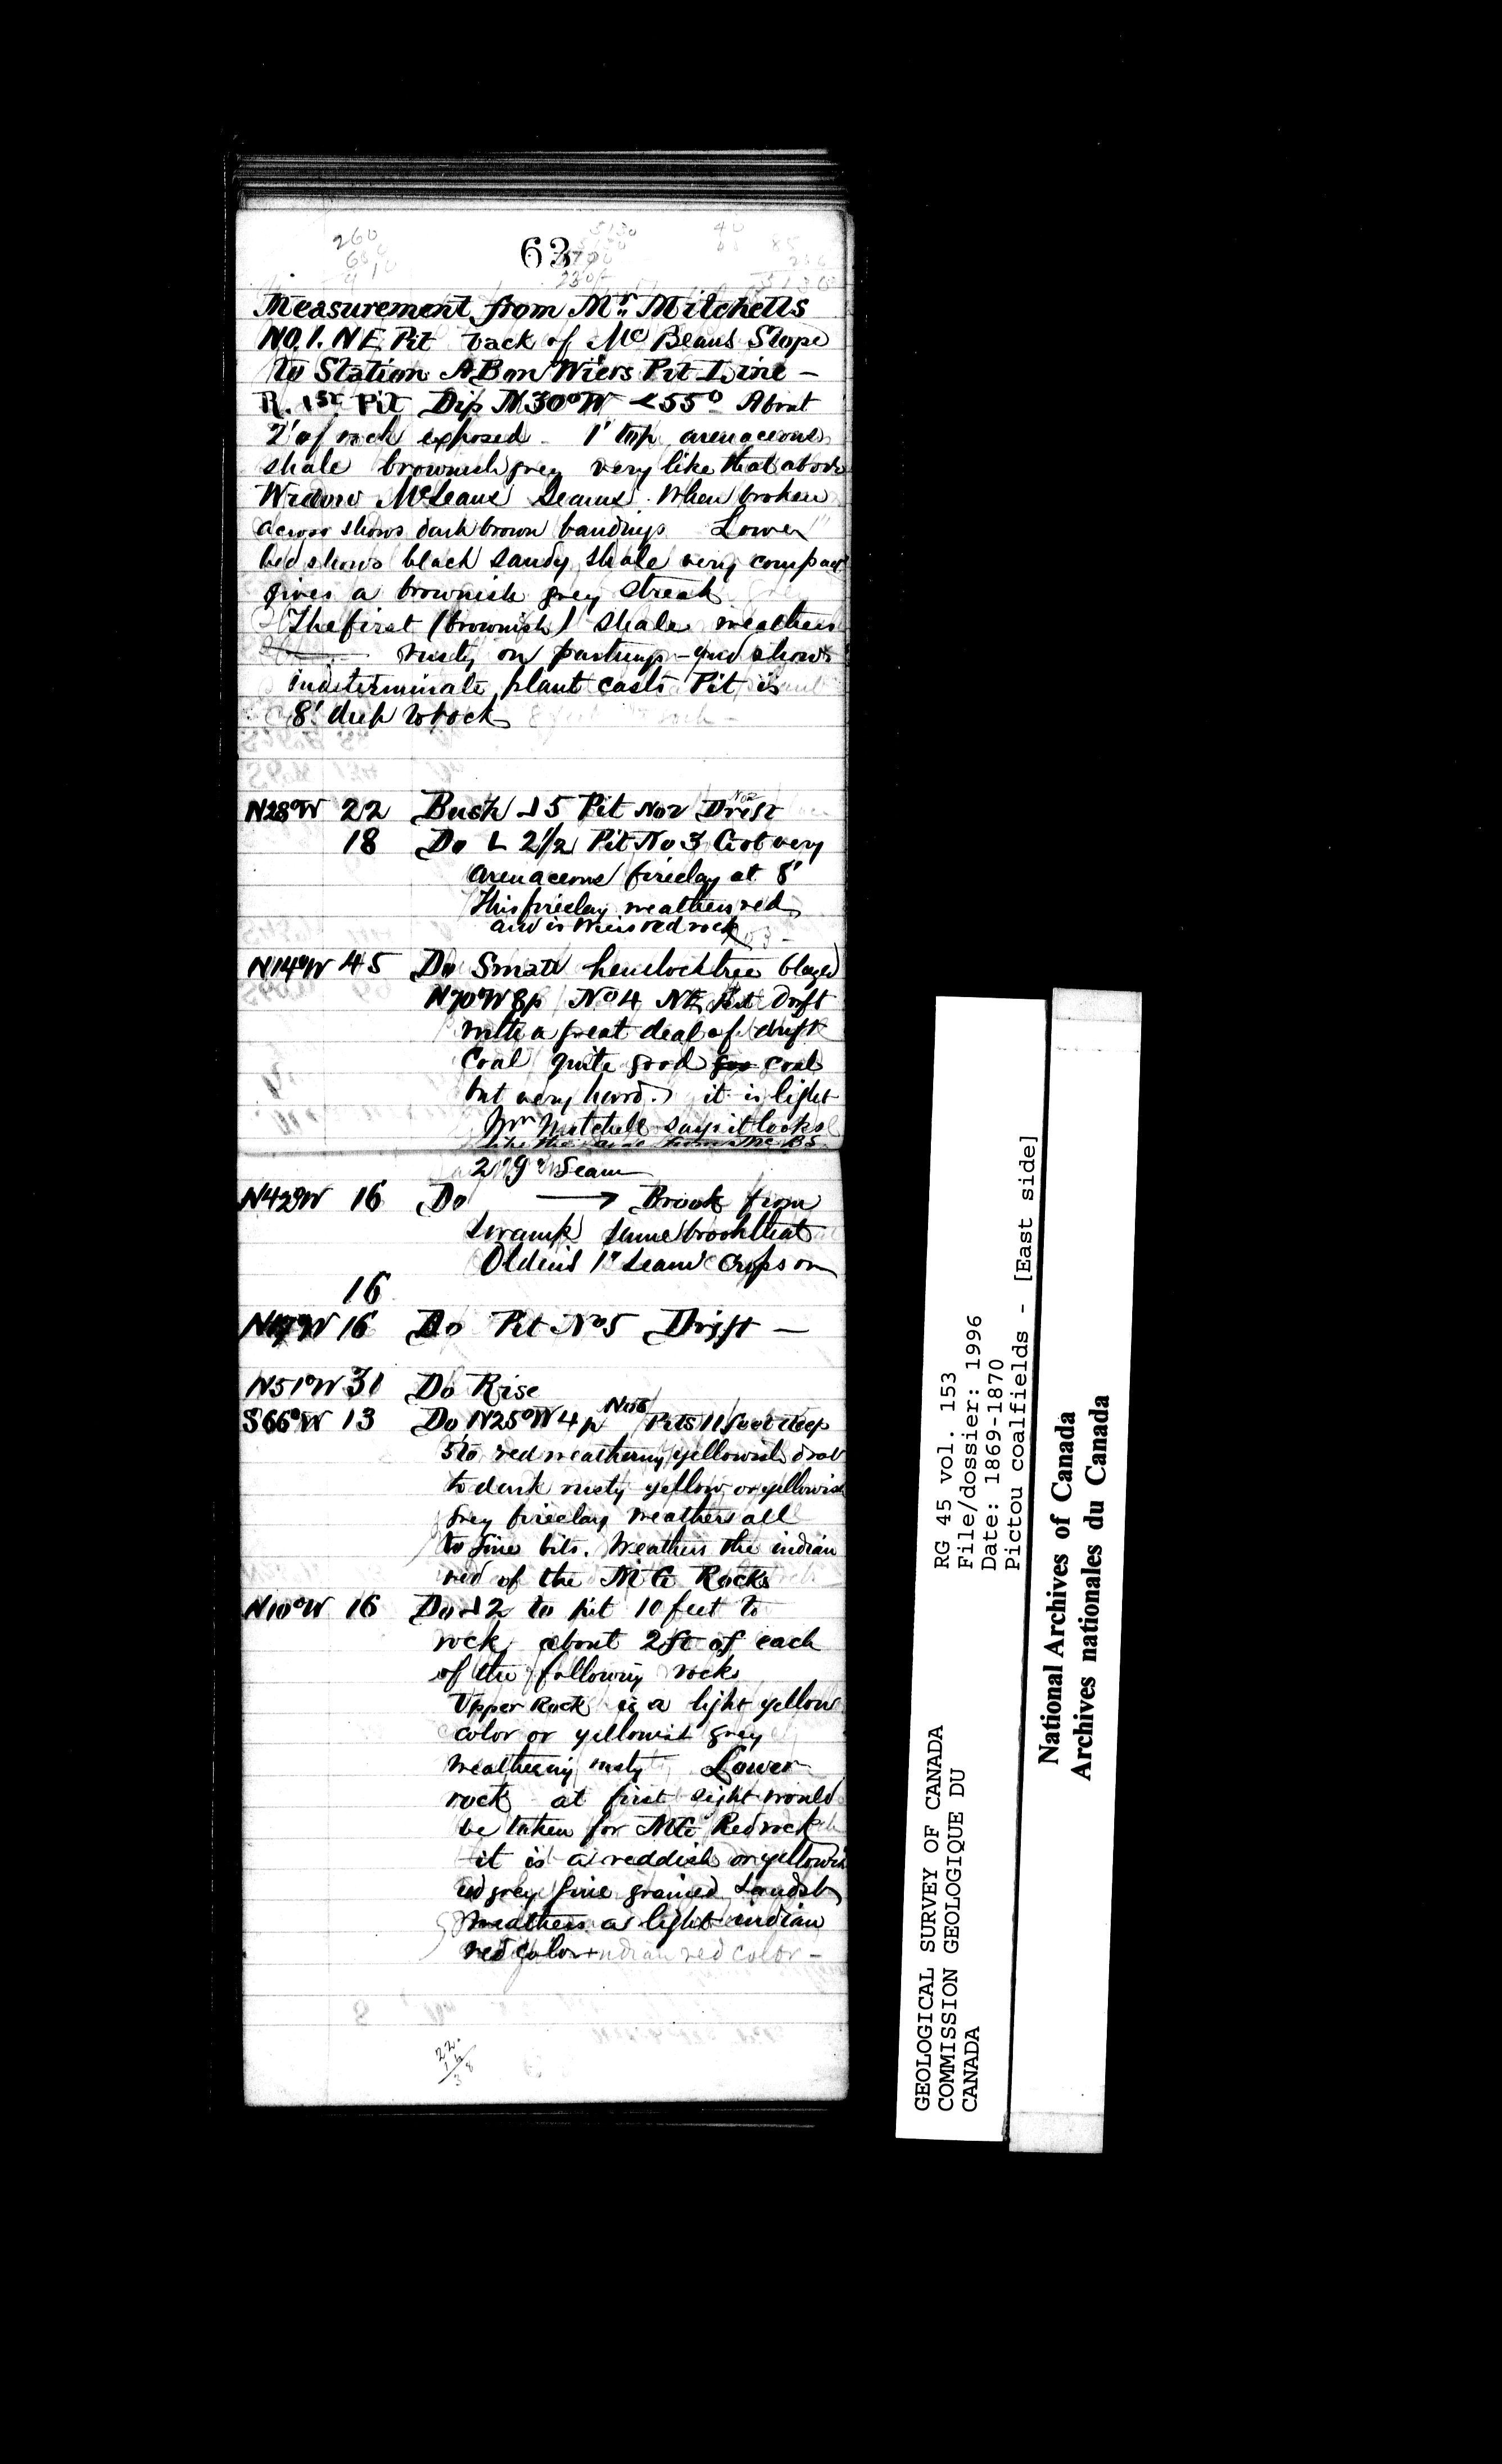 63
260
Measurement from Mr. Mitchells
No. 1. N E. Pit back of Mc Beans Slope
to Station A B on Wiers Pit Line –
R. 1st Pit Dip N 30° W < 55° About
2' of rock exposed – 1' top arenaceous
shale brownish grey very like that above
Widow McLeans Seams. When broken
across shows dark brown bandings Lower
bed shows black sandy shale very compact
gives a brownish grey streak
The first (brownish) shale weathers
rusty on partings – and shows
indeterminate plant casts Pit is
8' deep to rock
N28°W 22 Bush ⅃ 5 Pit No 2 Drift
18 Do L 2 1/2 Pit No 3 Got very
arenaceous fireclay at 8'
This fireclay weathers red
and is Wiers red rock
N14°W 45 Do Small hemlock tree blazed
N70°W 8p No 4 NE Pit Drift
with a great deal of drift
Coal quite good coal
but very hard. it is light
Mr Mitchell says it looks
like the Mc Bs
2' 9" Seam
N42°W 16 Do → Brook from
swamp same brook that
1" Seam Crops on
16
16 Do Pit No 5 Drift –
N51°W 31 Do Rise
S66°W 13 Do N25°W 4p No 6 Pits 11 feet deep
5 to red weathering yellowish drab
to dark rusty yellow or yellowish
grey fireclay weathers all
to fine bits. Weathers the indian
red of the M G Rocks
N10°W 16 Do ⅃ 2 to pit 10 feet to
rock about 2 ft of each
of the following rocks
Upper Rock is a light yellow
color or yellowish grey
weathering rusty Lower
rock at first sight would
be taken for MG Red rock
it is a reddish or yellowish
red grey fine grained Sandst
Weathers a light indian
red color
22
16
38
GEOLOGICAL SURVEY OF CANADA
COMMISSION GEOLOGIQUE DU
CANADA
RG 45 vol. 153
File/dossier: 1996
Date: 1869-1870
Pictou coalfields - [East side]
National Archives of Canada
Archives nationales du Canada